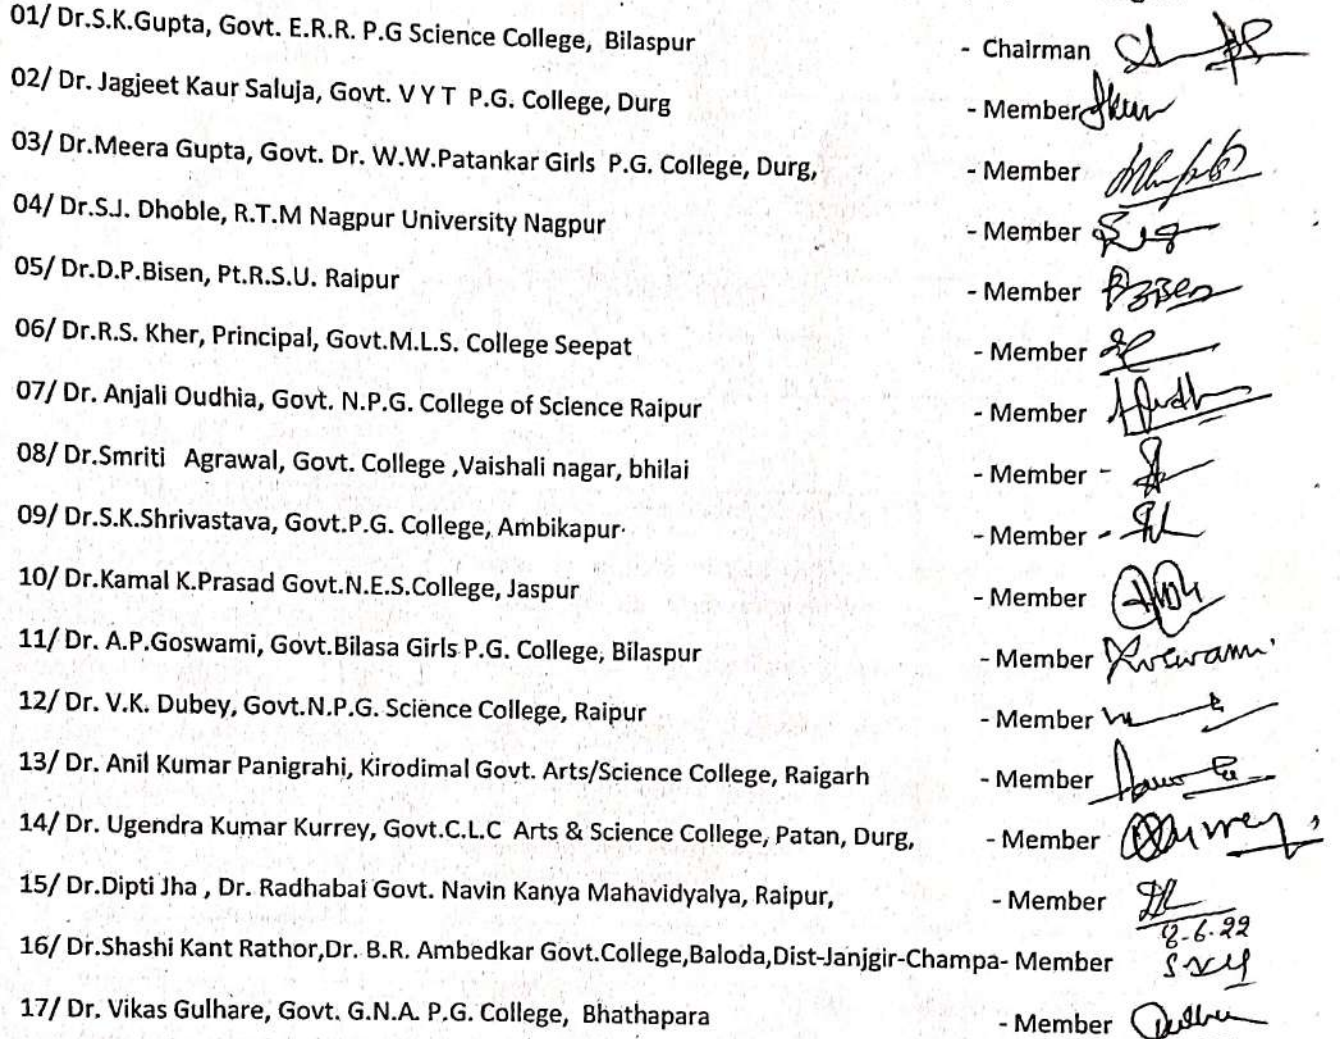 01/ Dr.S.K.Gupta, Govt. E.R.R. P.G Science College, Bilaspur - Chairman
02/ Dr. Jagjeet Kaur Saluja, Govt. V Y T P.G. College, Durg - Member
03/ Dr.Meera Gupta, Govt. Dr. W.W.Patankar Girls P.G. College, Durg, - Member
04/ Dr.S.J. Dhoble, R.T.M Nagpur University Nagpur - Member
05/ Dr.D.P.Bisen, Pt.R.S.U. Raipur - Member
06/ Dr.R.S. Kher, Principal, Govt.M.L.S. College Seepat - Member
07/ Dr. Anjali Oudhia, Govt. N.P.G. College of Science Raipur - Member
08/ Dr.Smriti Agrawal, Govt. College ,Vaishali nagar, bhilai - Member -
09/ Dr.S.K.Shrivastava, Govt.P.G. College, Ambikapur - Member -
10/ Dr.Kamal K.Prasad Govt.N.E.S.College, Jaspur - Member
11/ Dr. A.P.Goswami, Govt.Bilasa Girls P.G. College, Bilaspur - Member
12/ Dr. V.K. Dubey, Govt.N.P.G. Science College, Raipur - Member
13/ Dr. Anil Kumar Panigrahi, Kirodimal Govt. Arts/Science College, Raigarh - Member
14/ Dr. Ugendra Kumar Kurrey, Govt.C.L.C Arts & Science College, Patan, Durg, - Member
15/ Dr.Dipti Jha , Dr. Radhabai Govt. Navin Kanya Mahavidyalya, Raipur, - Member
8.6.22
16/ Dr.Shashi Kant Rathor,Dr. B.R. Ambedkar Govt.College,Baloda,Dist-Janjgir-Champa- Member
17/ Dr. Vikas Gulhare, Govt. G.N.A. P.G. College, Bhathapara - Member